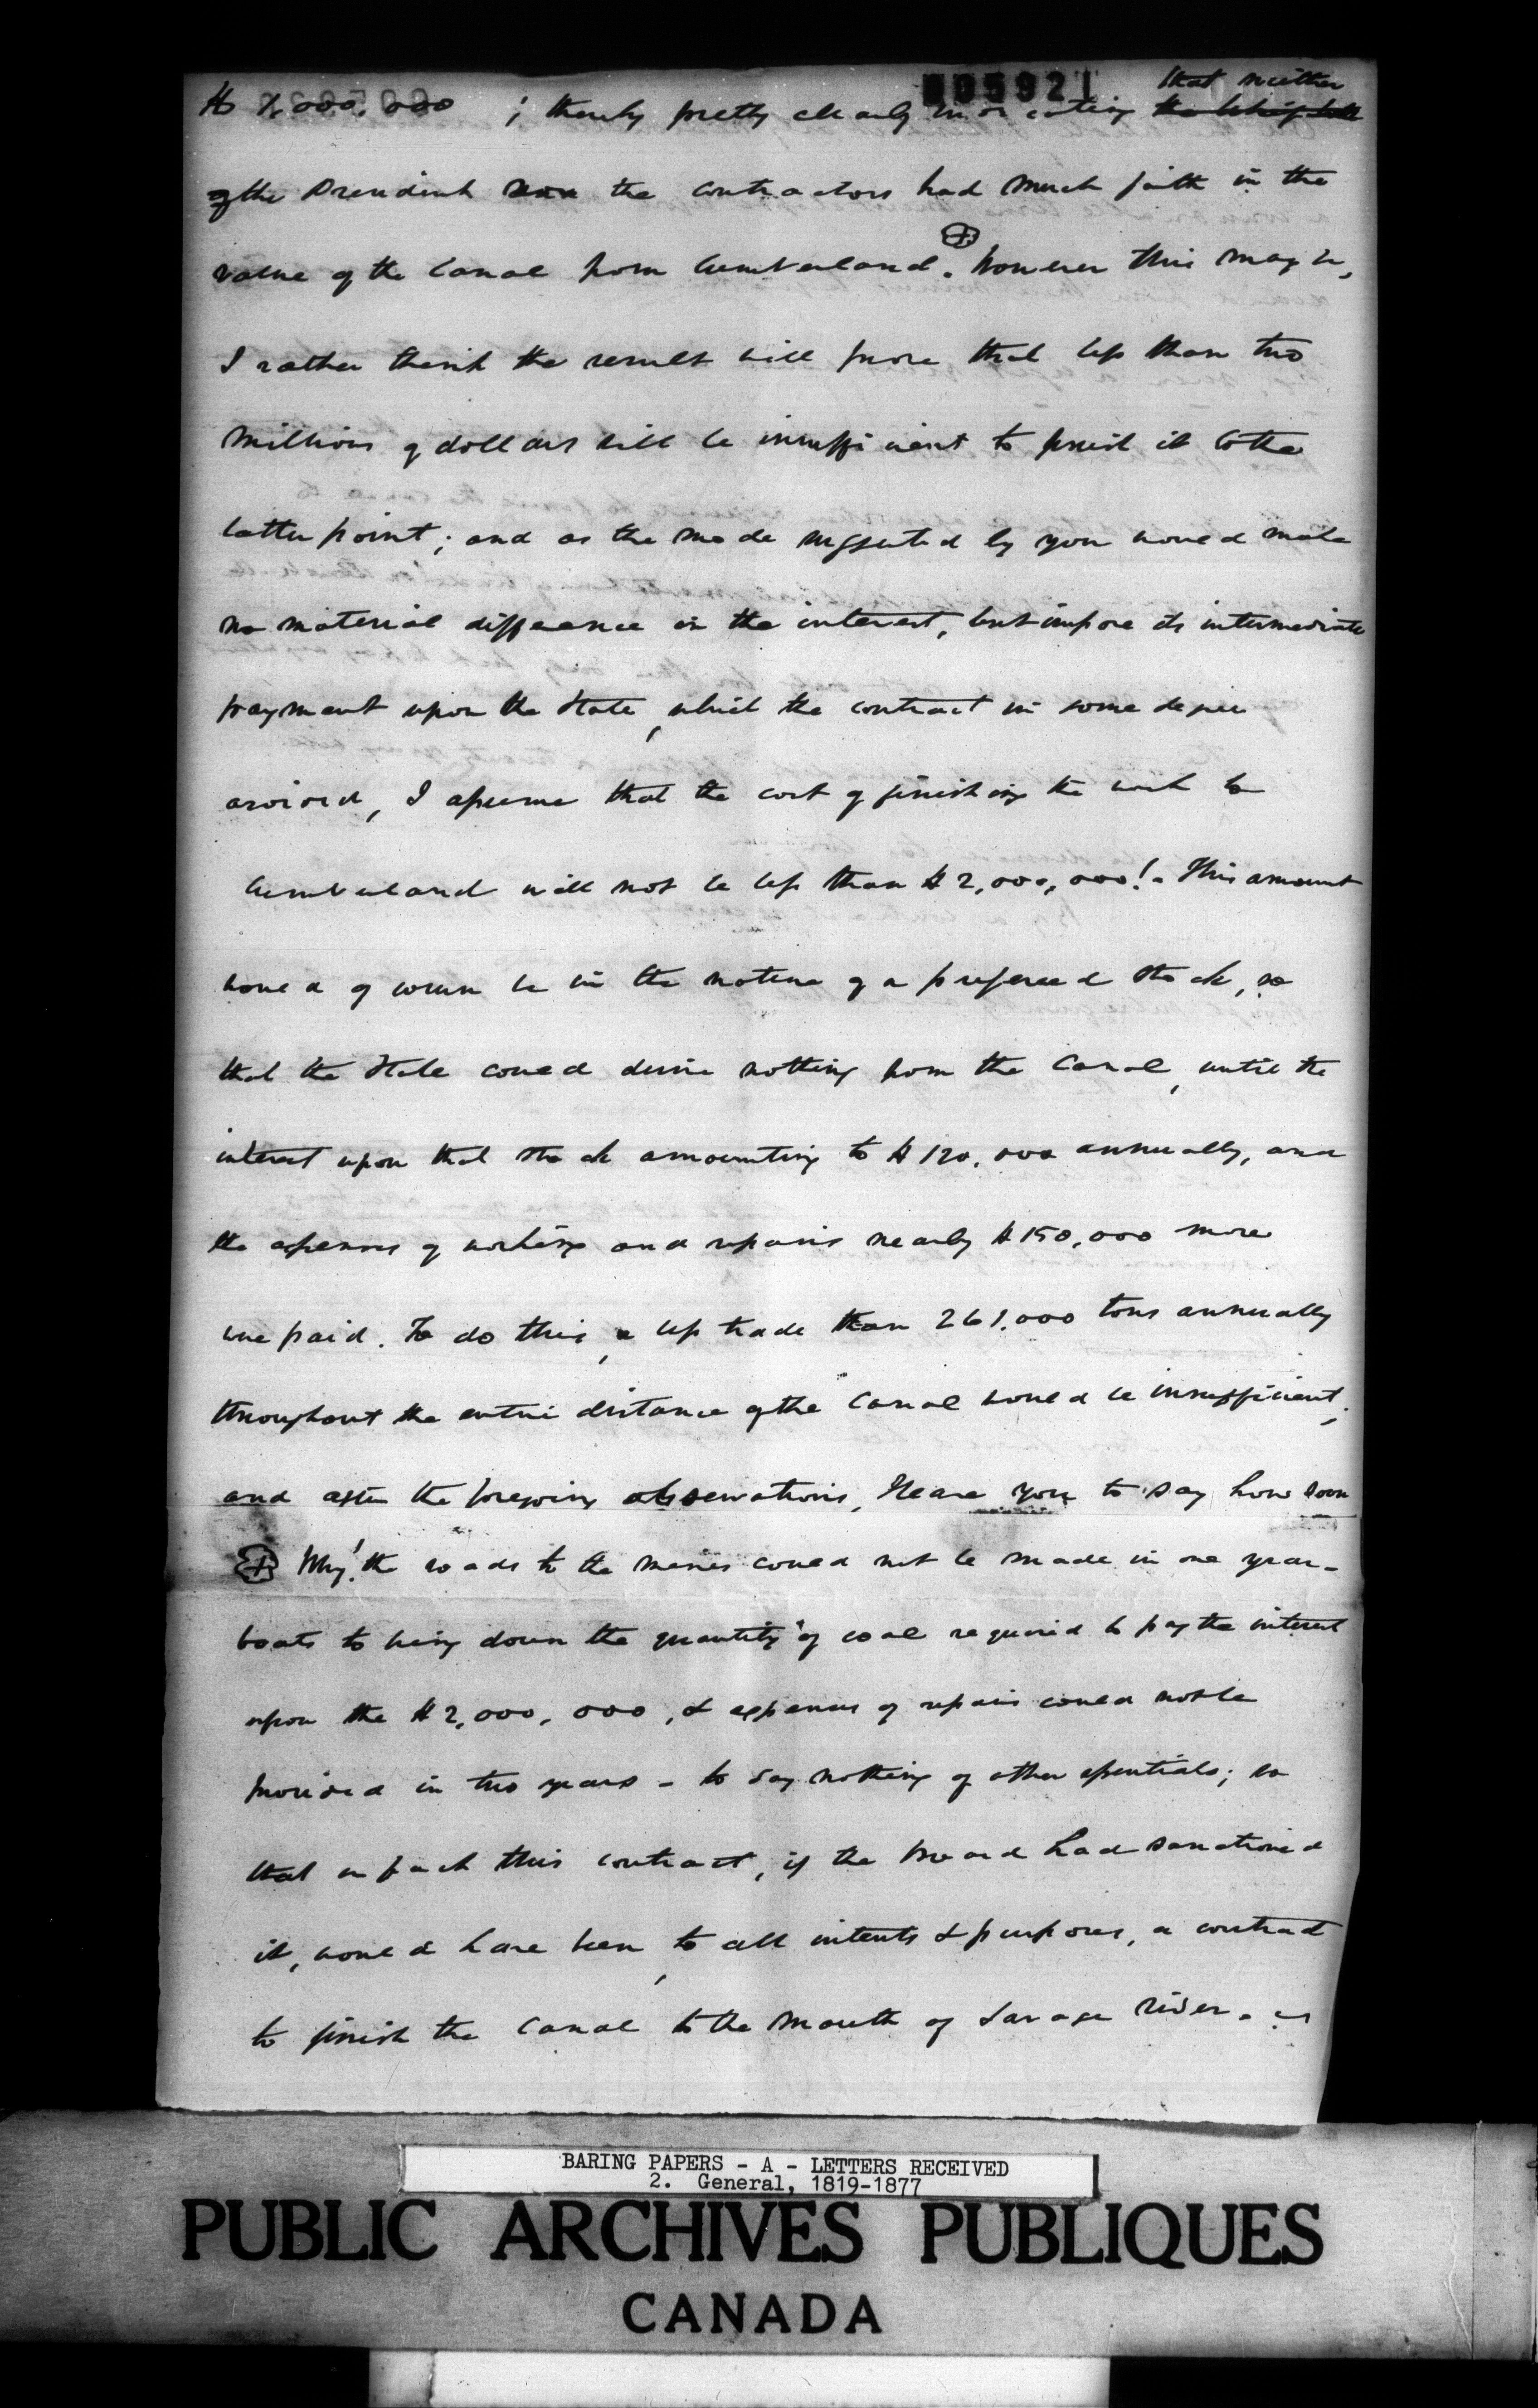 005921
that neither
$ 2,000,000 ; thereby pretty clearly indicating
of the President nor the contractors had much faith in the
value of the Canal from Cumberland. ⊕ However this may be,
I rather think the result will prove that less than two
millions of dollars will be insufficient to finish it to the
latter point; and as the mode suggested by you would make
no material difference in the interest, but impose its intermediate
payment upon the State, which the contract in some degree
avoided, I assume that the cost of finishing the work to
Cumberland will not be less than $2,000,000! - This amount
would of course be in the nature of a preferred stock, so
that the State could derive nothing from the Canal, until the
interest upon that stock amounting to $120,000 annually, and
the expenses of working and repairs nearly $150,000 more
were paid. To do this, a less trade than 261,000 tons annually
throughout the entire distance of the Canal would be insufficient;
and after the foregoing observations, I leave you to say how soon
⊕ Why! the roads to the mines could not be made in one year -
boats to bring down the quantity of coal required to pay the interest
upon the $2,000,000, & expenses of repairs could not be
provided in two years - to say nothing of other essentials; so
that in fact this contract, if the board had sanctioned
it, would have been, to all intents & purposes, a contract
to finish the Canal to the mouth of Savage River.
BARING PAPERS - A - LETTERS RECEIVED
2. General, 1819-1877
PUBLIC ARCHIVES PUBLIQUES
CANADA